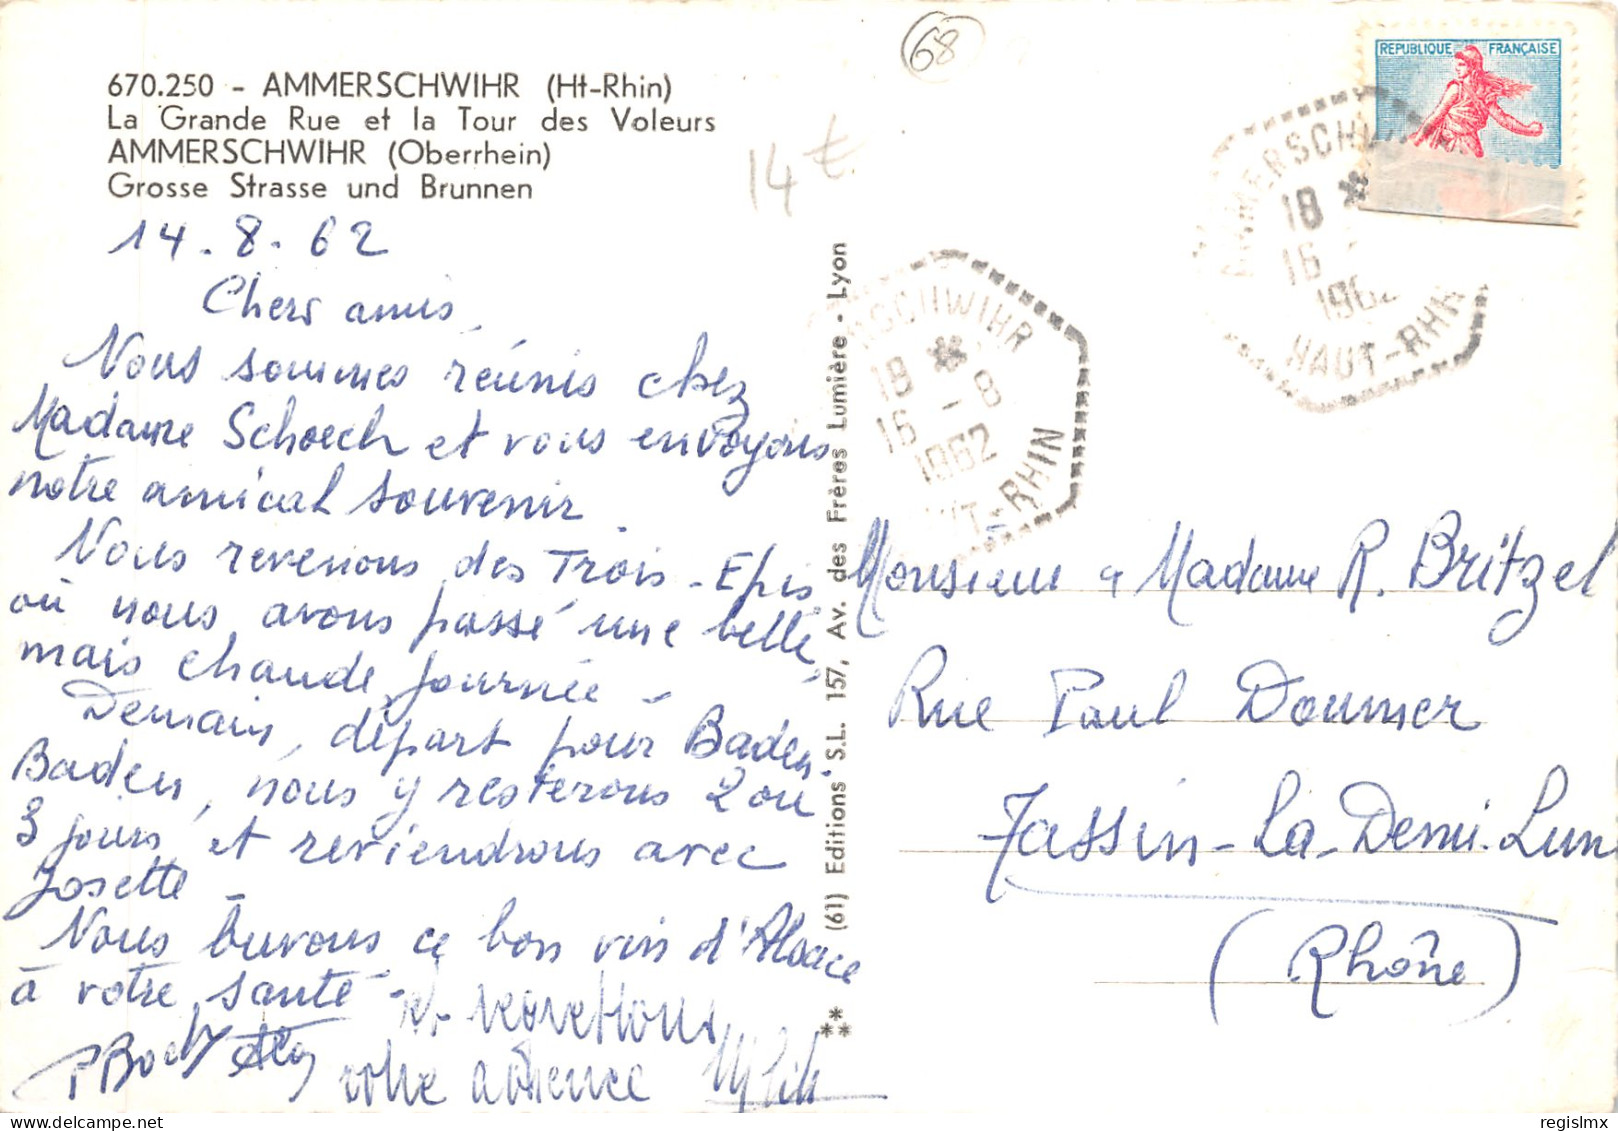 68
REPUBLIQUE FRANÇAISE
670.250 - AMMERSCHWIHR (Ht-Rhin)
La Grande Rue et la Tour des Voleurs
AMMERSCHWIHR (Oberrhein)
Grosse Strasse und Brunnen
14 €
AMMERSCHWIHR
18 *
16
1962
HAUT-RHIN
RSCHWIHR
18 *
16 - 8
1962
UT-RHIN
14.8.62
Chers amis,
Nous sommes réunis chez
Madame Schoech et vous envoyons
notre amical souvenir.
Nous revenons des Trois-Epis
où nous avons passé une belle,
mais chaude journée -
Demain, départ pour Baden-
Baden, nous y resterons 2 ou
3 jours et reviendrons avec
Josette -
Nous buvons ce bon vin d'Alsace
à votre santé -
et regrettons
votre absence
(61) Editions S.L. 157, Av. des Frères Lumière - Lyon
Monsieur & Madame R. Britzel
Rue Paul Doumer
Tassin-La-Demi-Lune
(Rhône)
delcampe.net
regislmx